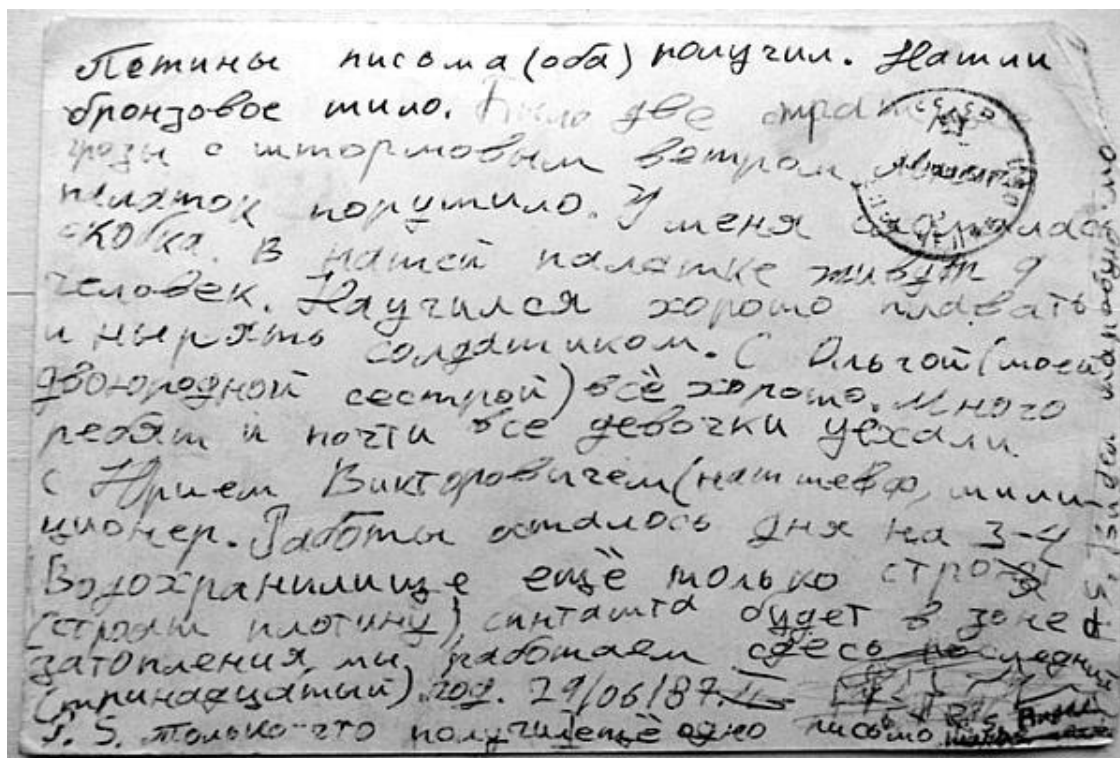 Петины письма (оба) получил. Нашли
бронзовое шило. Было две страшные
грозы с штормовым ветром, много
палаток порушило. У меня сломалась
скобка. В нашей палатке живут 9
человек. Научился хорошо плавать
и нырять солдатиком. С Ольгой (моей
двоюродной сестрой) всё хорошо. Много
ребят и почти все девочки уехали
с Юрием Викторовичем (наш шеф, мили-
ционер. Работы осталось дня на 3-4
Водохранилище ещё только строят
(строят плотину), синташта будет в зоне
затопления, мы работаем здесь последний
(тринадцатый) год. 29/06/87.
P.S. только-что получил ещё одно письмо